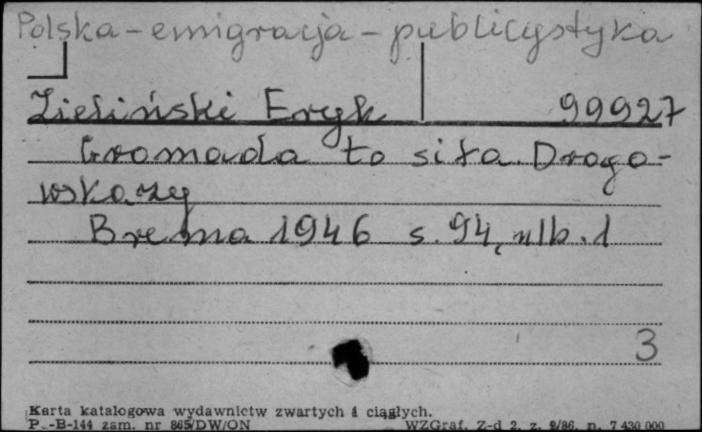 Polska - emigracja - publicystyka
Zieliński Eryk 99927
Gromada to siła. Drogo-
wskazy
Brema 1946 s. 94, nlb. 1
3
Karta katalogowa wydawnictw zwartych i ciągłych.
P.-B-144 zam. nr 865/DW/ON WZGraf. Z-d 2. z. 9/86. n. 7 430 000